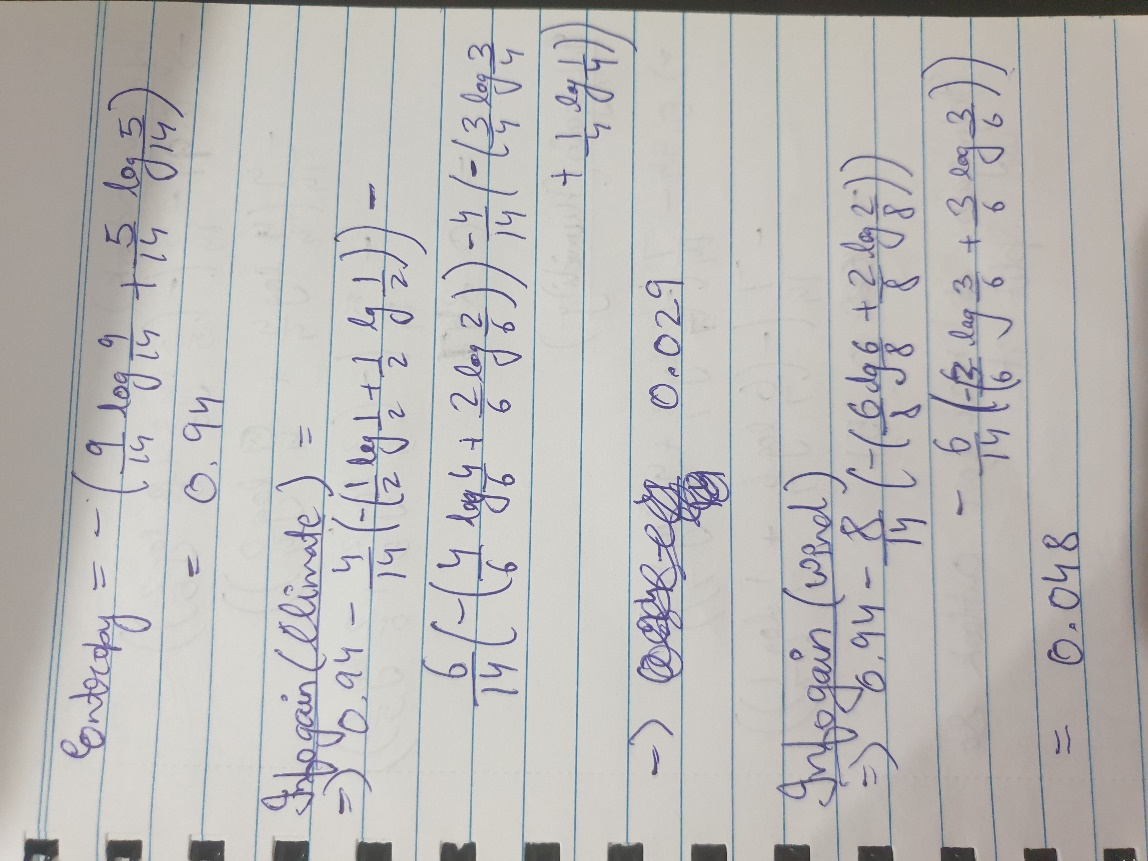 Entropy = - (9/14 log 9/14 + 5/14 log 5/14)
= 0.94
Infogain (Climate) =
=) 0.94 - 4/14 (-(1/2 log 1/2 + 1/2 log 1/2)) -
6/14 (-(4/6 log 4/6 + 2/6 log 2/6)) - 4/14 (-(3/4 log 3/4
+ 1/4 log 1/4))
=) 0.029
Infogain (wind)
=) 0.94 - 8/14 (-(6/8 log 6/8 + 2/8 log 2/8))
- 6/14 (-(3/6 log 3/6 + 3/6 log 3/6))
= 0.048